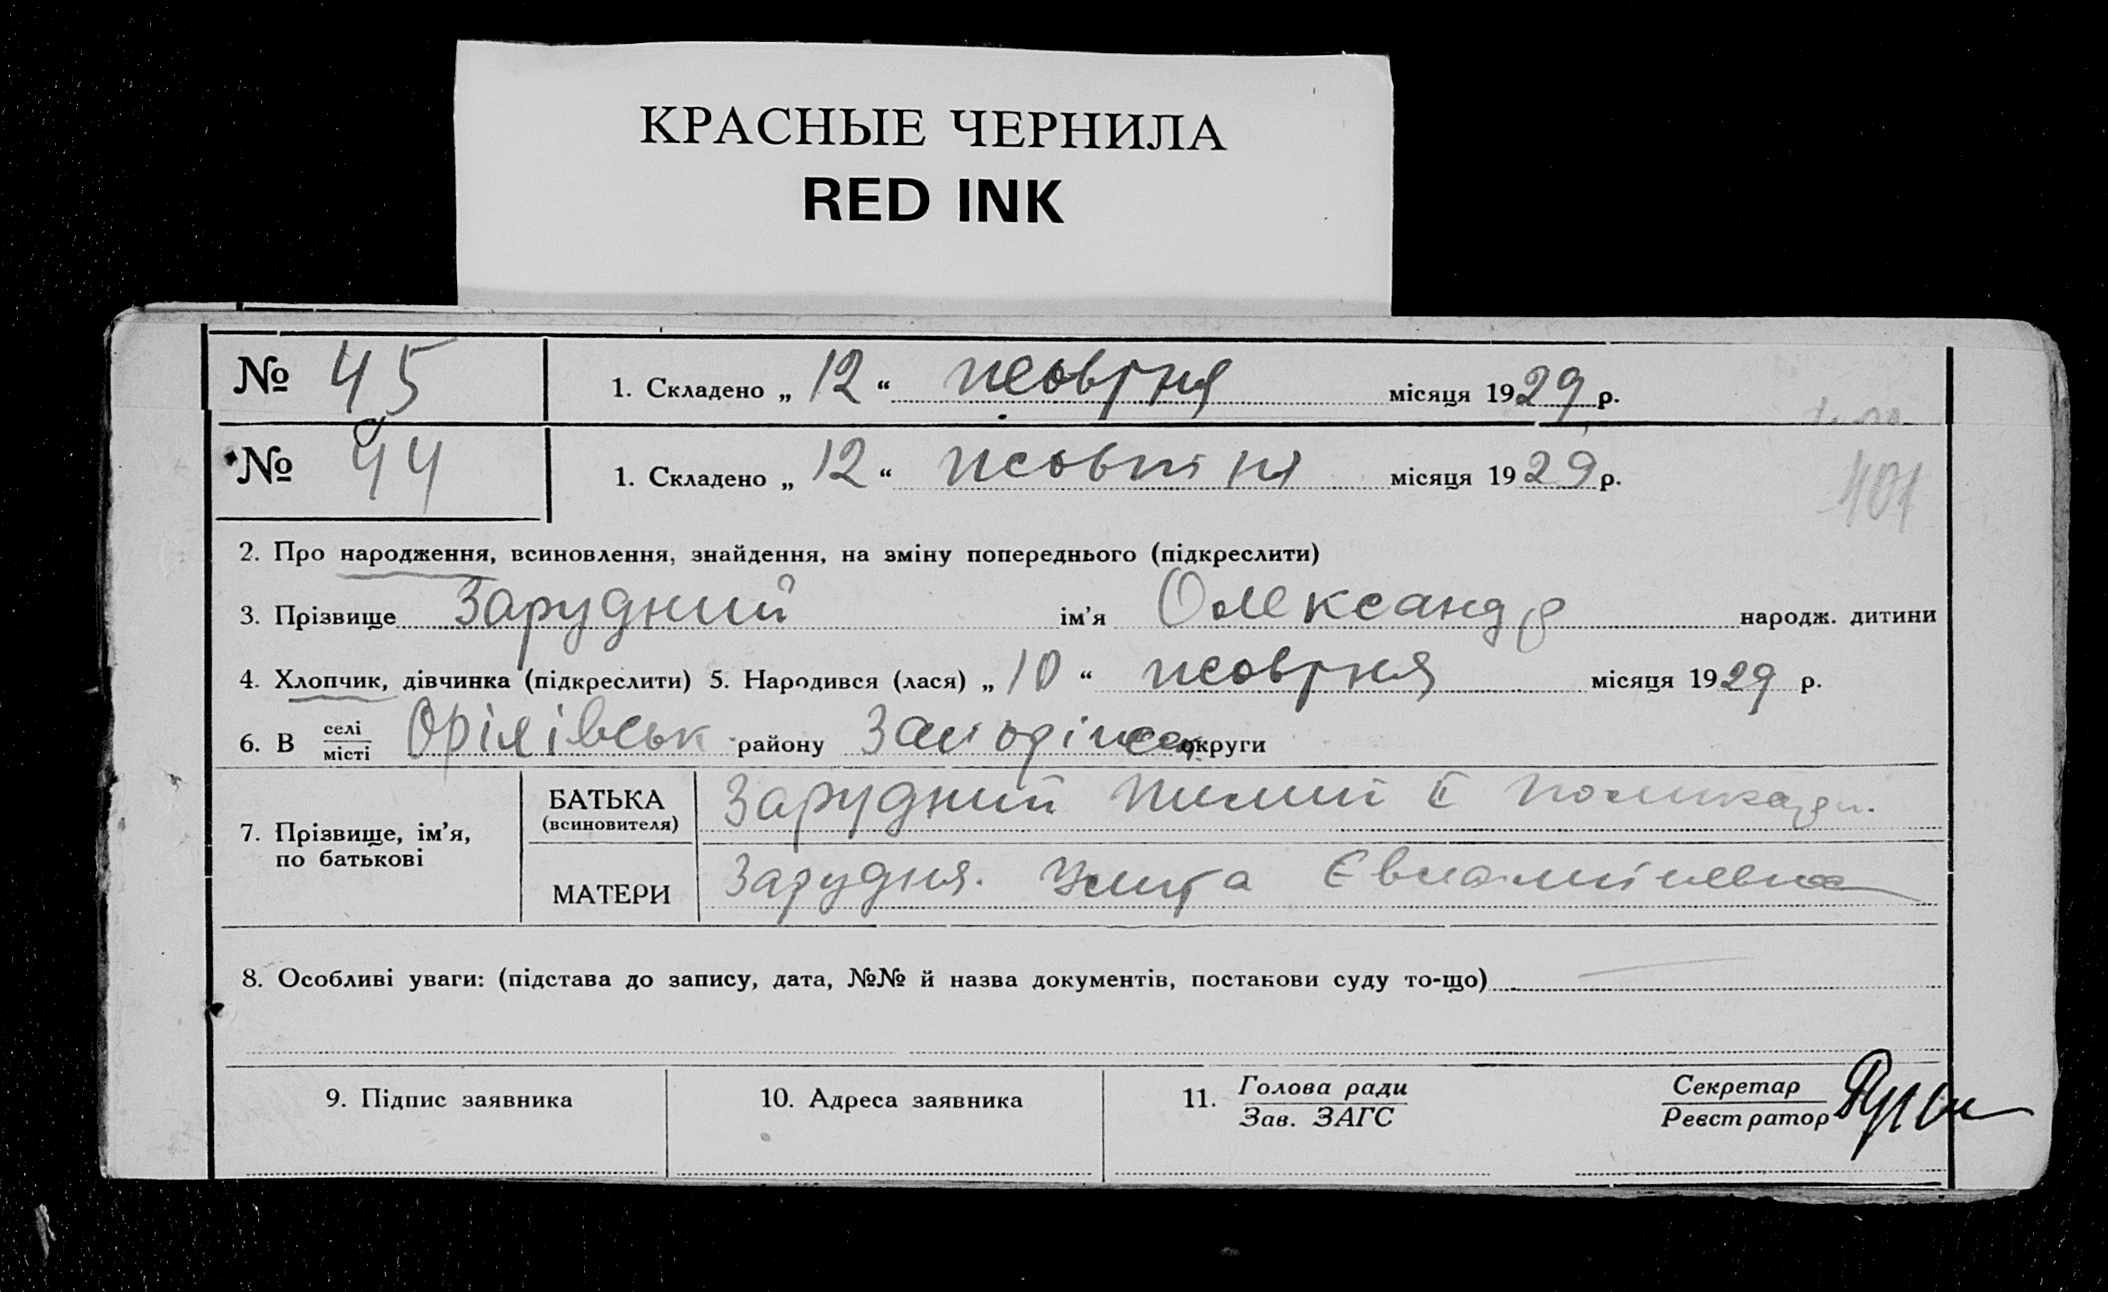 КРАСНЫЕ ЧЕРНИЛА
RED INK
№ 45 1. Складено „ 12 “ жовтня місяця 1929 р.
№ 44 1. Складено „ 12 “ жовтня місяця 1929 р.
401
2. Про народження, всиновлення, знайдення, на зміну попереднього (підкреслити)
3. Прізвище Зарудний ім’я Олександр народж. дитини
4. Хлопчик, дівчинка (підкреслити) 5. Народився (лася) „ 10 “ жовтня місяця 1929 р.
6. В селі / місті району округи
7. Прізвище, ім’я, по батькові
БАТЬКА (всиновителя) Зарудний
МАТЕРИ Зарудня.
8. Особливі уваги: (підстава до запису, дата, №№ й назва документів, постанови суду то-що)
9. Підпис заявника 10. Адреса заявника 11. Голова ради / Зав. ЗАГС Секретар / Реєстратор